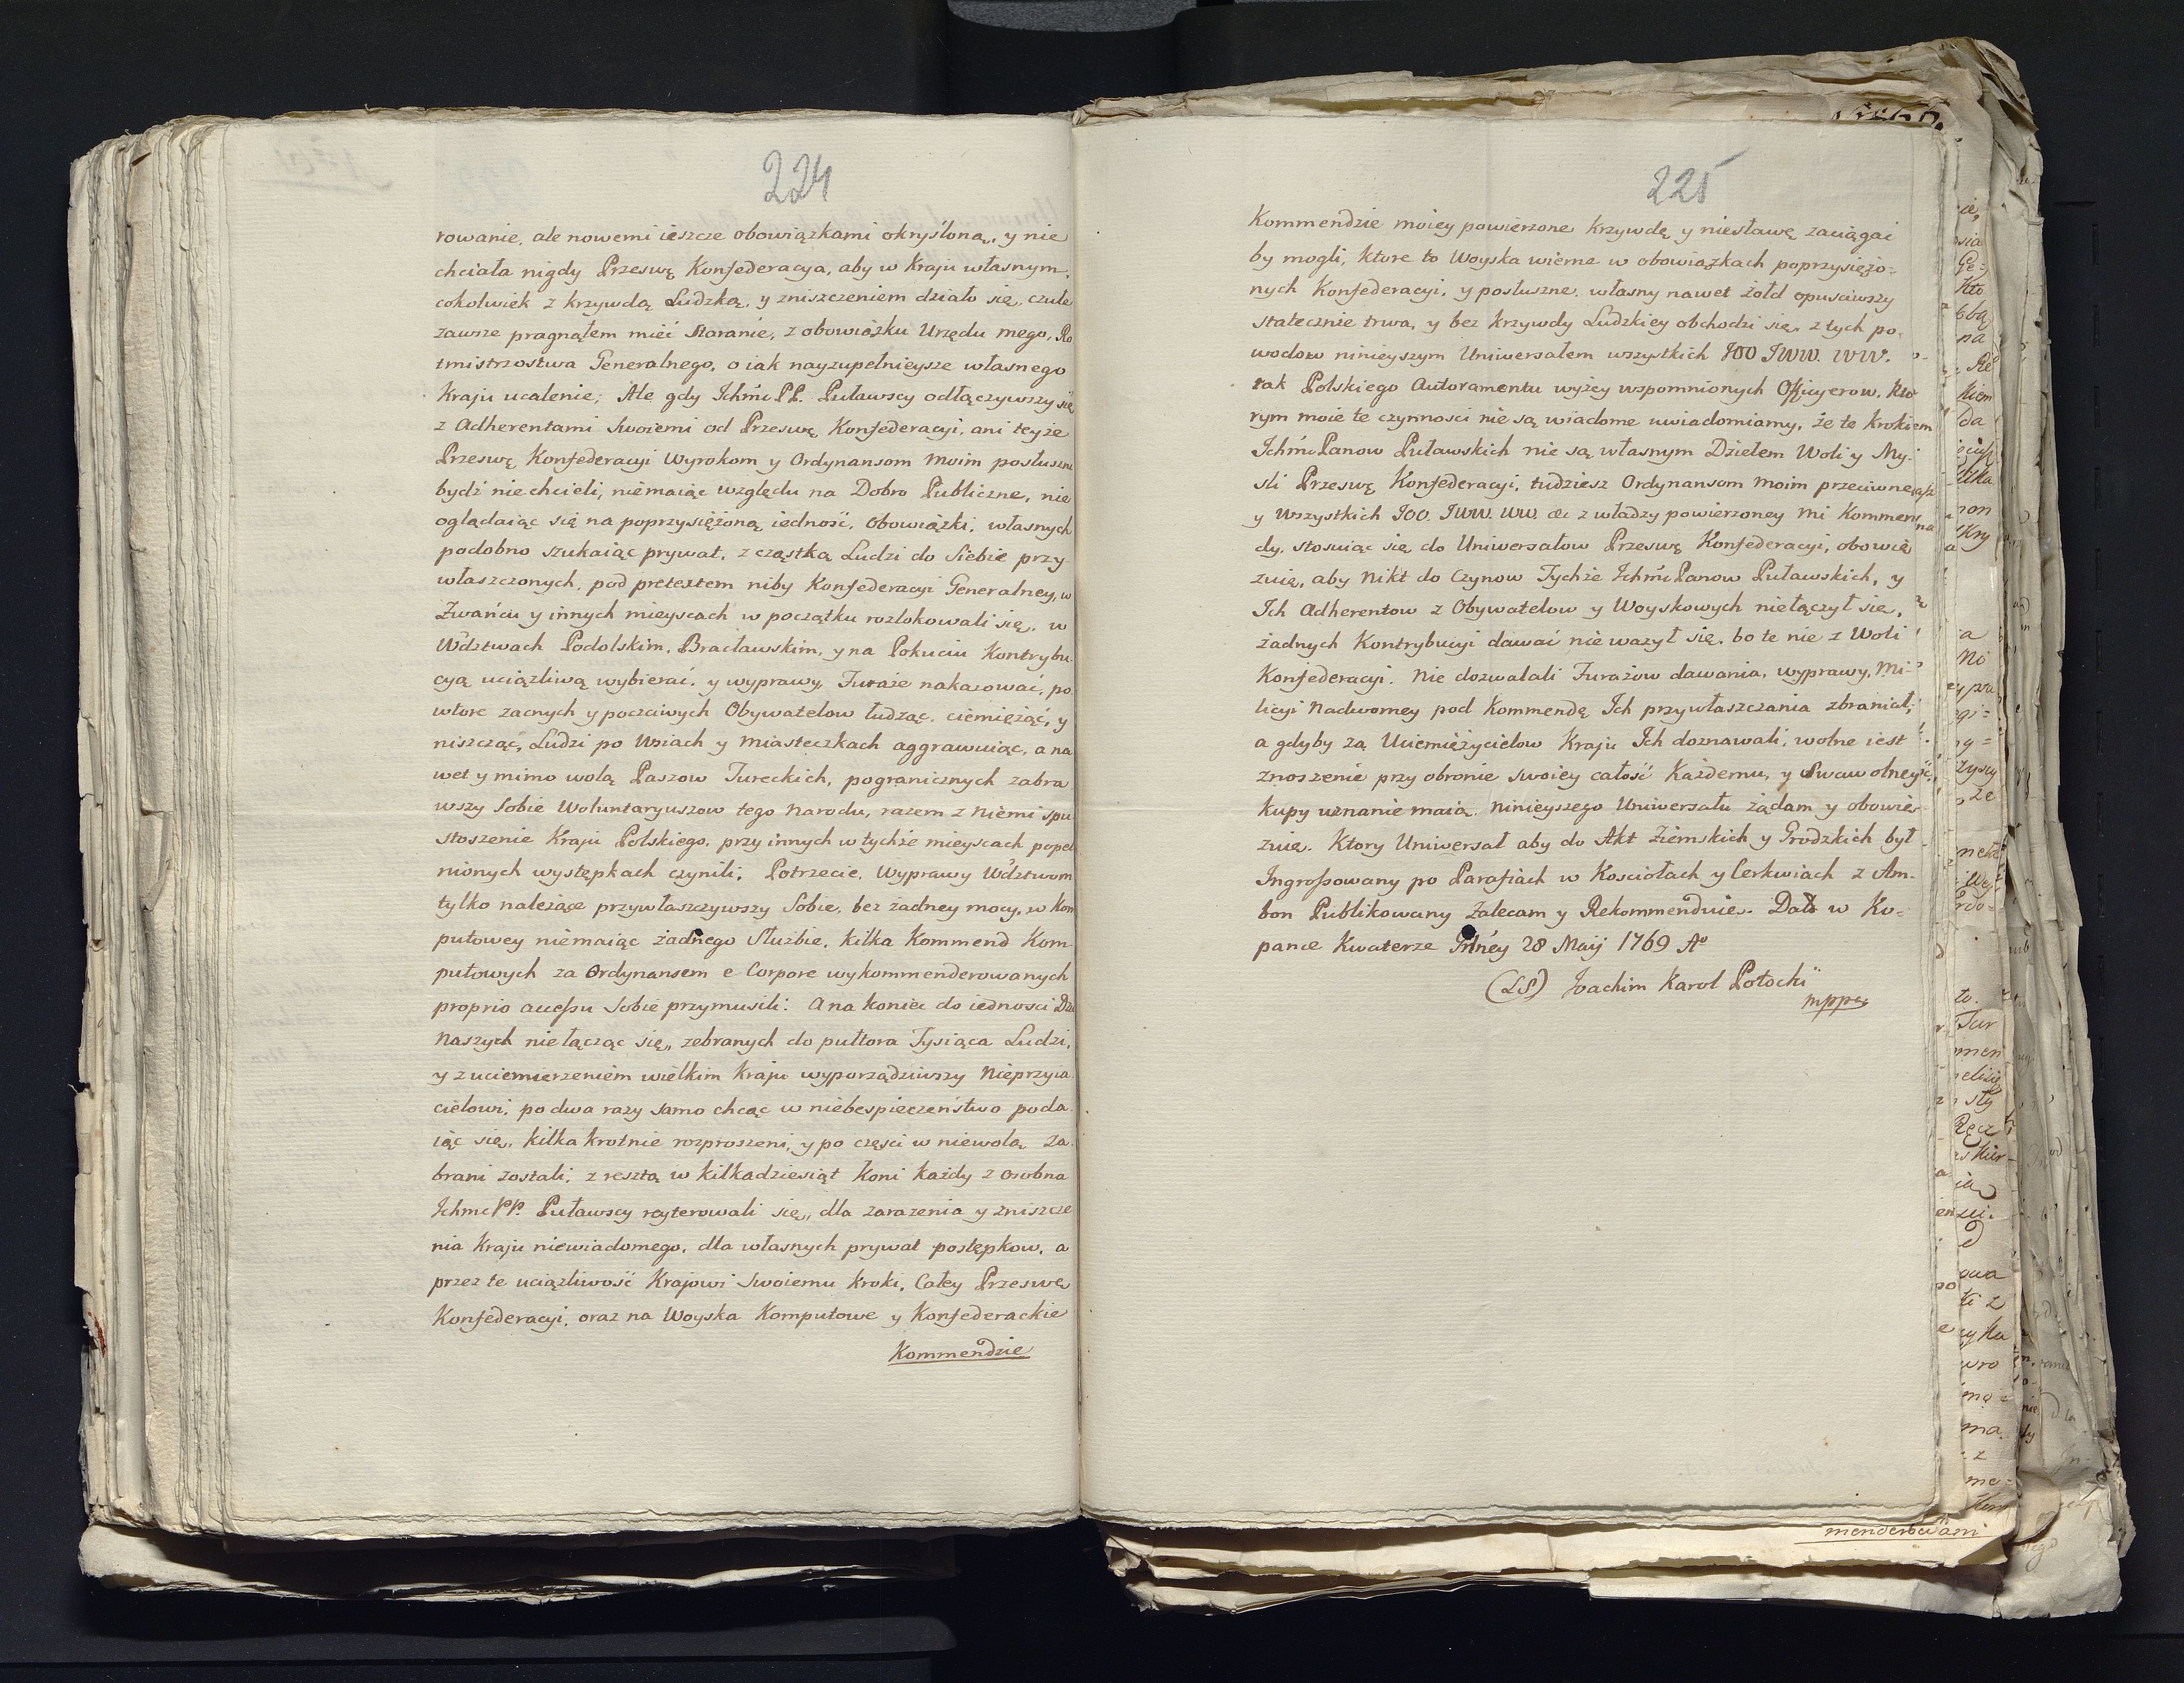 224
rowanie, ale nowemi ieszcze obowiązkami okryśloną, y nie
chciała nigdy Przeswę Konfederacya, aby w Kraju własnym,
cokolwiek z krzywdą Ludzką, y zniszczeniem działo się, czułe
zawsze pragnąłem mieć Staranie, z obowiązku Urzędu mego, Ro
tmistrzostwa Generalnego, o iak nayzupełnieysze własnego
Kraju ucalenie; Ale gdy Ichmć PP. Puławscy odłączywszy się
z Adherentami Swoiemi od Przeswę Konfederacyi, ani teyże
Przeswę Konfederacyi Wyrokom y Ordynansom moim posłuszni
bydź niechcieli, niemaiąc względu na Dobro Publiczne, nie
oglądaiąc się na poprzysiężoną iedność, Obowiązki, własnych
podobno szukaiąc prywat, z cząstką Ludzi do Siebie przy
właszczonych, pod pretextem niby Konfederacyi Generalney, w
Żwańcu y innych mieyscach w początku rozlokowali się, w
Wdztwach Podolskim, Bracławskim, y na Pokuciu Kontrybu
cyą uciążliwą wybierać, y wyprawy, Furaże nakazować, po
wtore zacnych y poczciwych Obywatelow łudząc, ciemiężąć, y
niszcząć, Ludzi po Wsiach y Miasteczkach aggrawuiąc, a na
wet y mimo wolą Paszow Tureckich, pogranicznych zabra
wszy Sobie Woluntaryuszow tego Narodu, razem z Niemi spu
stoszenie Kraju Polskiego, przy innych w tychże mieyscach popeł
nionych występkach czynili, Potrzecie, Wyprawy Wdztwom
tylko należące przywłaszczywszy Sobie, bez żadney mocy, w Kom
putowey niemaiąc żadnego Służbie, kilka Kommend Kom
putowych za Ordynansem e Corpore wykommenderowanych
proprio ausu Sobie przymusili: A na koniec do iedności
Naszych nie łącząc się, zebranych do pułtora Tysiąca Ludzi,
y z uciemierzeniem wielkim Kraju wyporządziwszy Nieprzyia
cielowi, po dwa razy samo chcąc w niebespieczeństwo poda
iąc się, kilka krotnie rozproszeni, y po części w niewolą za
brani zostali, z resztą w kilkadziesiąt Koni każdy z osobna
Ichmć PP. Puławscy reyterowali się, dla zarażenia y zniszcze
nia Kraju niewiadomego, dla własnych prywat postępkow, a
przez te uciążliwość Krajowi Swoiemu kroki, Całey Przeswę
Konfederacyi, oraz na Woyska Komputowe y Konfederackie
Kommendzie
225
Kommendzie moiey powierzone Krzywdę y niesławę zaciągać
by mogli, ktore to Woyska wierne w obowiązkach poprzysiężo-
nych Konfederacyi, y posłuszne, własny nawet żołd opuściwszy
statecznie trwa, y bez krzywdy Ludzkiey obchodzi się, z tych po-
wodow ninieyszym Uniwersałem wszystkich JOO JWW. WW.
iak Polskiego Autoramentu wyżey wspomnionych Officyerow, Kto
rym moie te czynności nie są wiadome uwiadomiamy, że te Krokiem
Ichmć Panow Puławskich nie są własnym Dziełem Woli y My-
śli Przeswę Konfederacyi, tudziesz Ordynansom moim przeciwne
y wszystkich JOO. JWW. WW. &c z władzy powierzoney mi Kommen
dy, stosuiąc się do Uniwersałow Przeswę Konfederacyi, obowią
zuię, aby Nikt do Czynow Tychże Ichmć Panow Puławskich, y
Ich Adherentow z Obywatelow y Woyskowych nie łączył się,
żadnych Kontrybucyi dawać nie ważył się, bo te nie z Woli
Konfederacyi. Nie dozwalali Furażow dawania, wyprawy, Mi-
licyi Nadworney pod Kommendę Ich przywłaszczania zbraniał,
a gdyby za Uciemiężycielow Kraju Ich doznawali, wolne iest
znoszenie przy obronie swoiey całość Każdemu, y Swawolney
kupy uznanie maią. Ninieyszego Uniwersału żądam y obowią
zuię. Ktory Uniwersał aby do Akt Ziemskich y Grodzkich był
Ingrossowany po Parafiach w Kosciołach y Cerkwiach z Am-
bon Publikowany Zalecam y Rekommenduię. Dat w Ko-
pance Kwaterze Glney 28 Maij 1769 Ao
(LS) Joachim Karol Potocki
mppa
menderowami